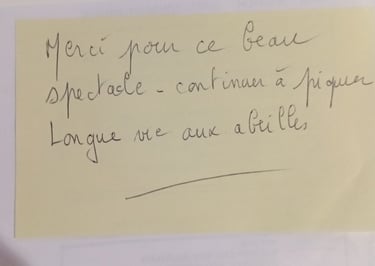 Merci pour ce beau
spectacle - continuer à piquer
Longue vie aux abeilles